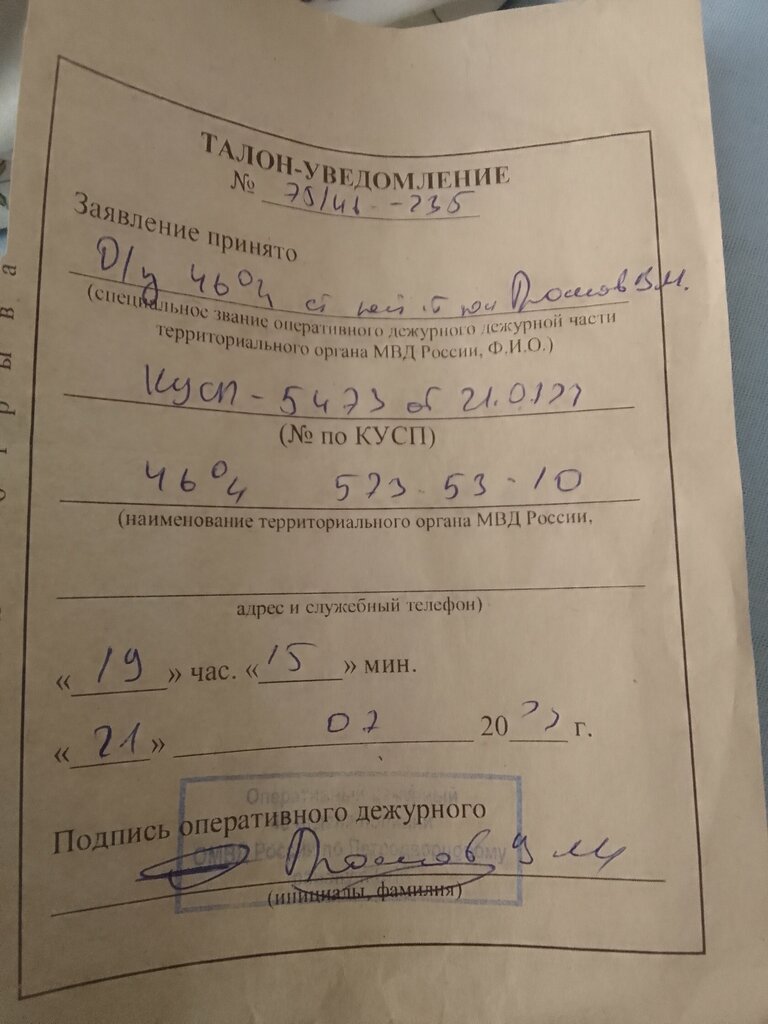 ТАЛОН-УВЕДОМЛЕНИЕ
№ 75/46 -235
Заявление принято
Д/ч 46 о/п ст В.М.
(специальное звание оперативного дежурного дежурной части
территориального органа МВД России, Ф.И.О.)
КУСП - 5473 от 21.07.22
(№ по КУСП)
46 о/п 573-53-10
(наименование территориального органа МВД России,
адрес и служебный телефон)
« 19 » час. « 15 » мин.
« 21 » 07 20 22 г.
Подпись оперативного дежурного
Оперативный дежурный
ОМВД России по Петродворцовому
В М
(инициалы, фамилия)
отрыва